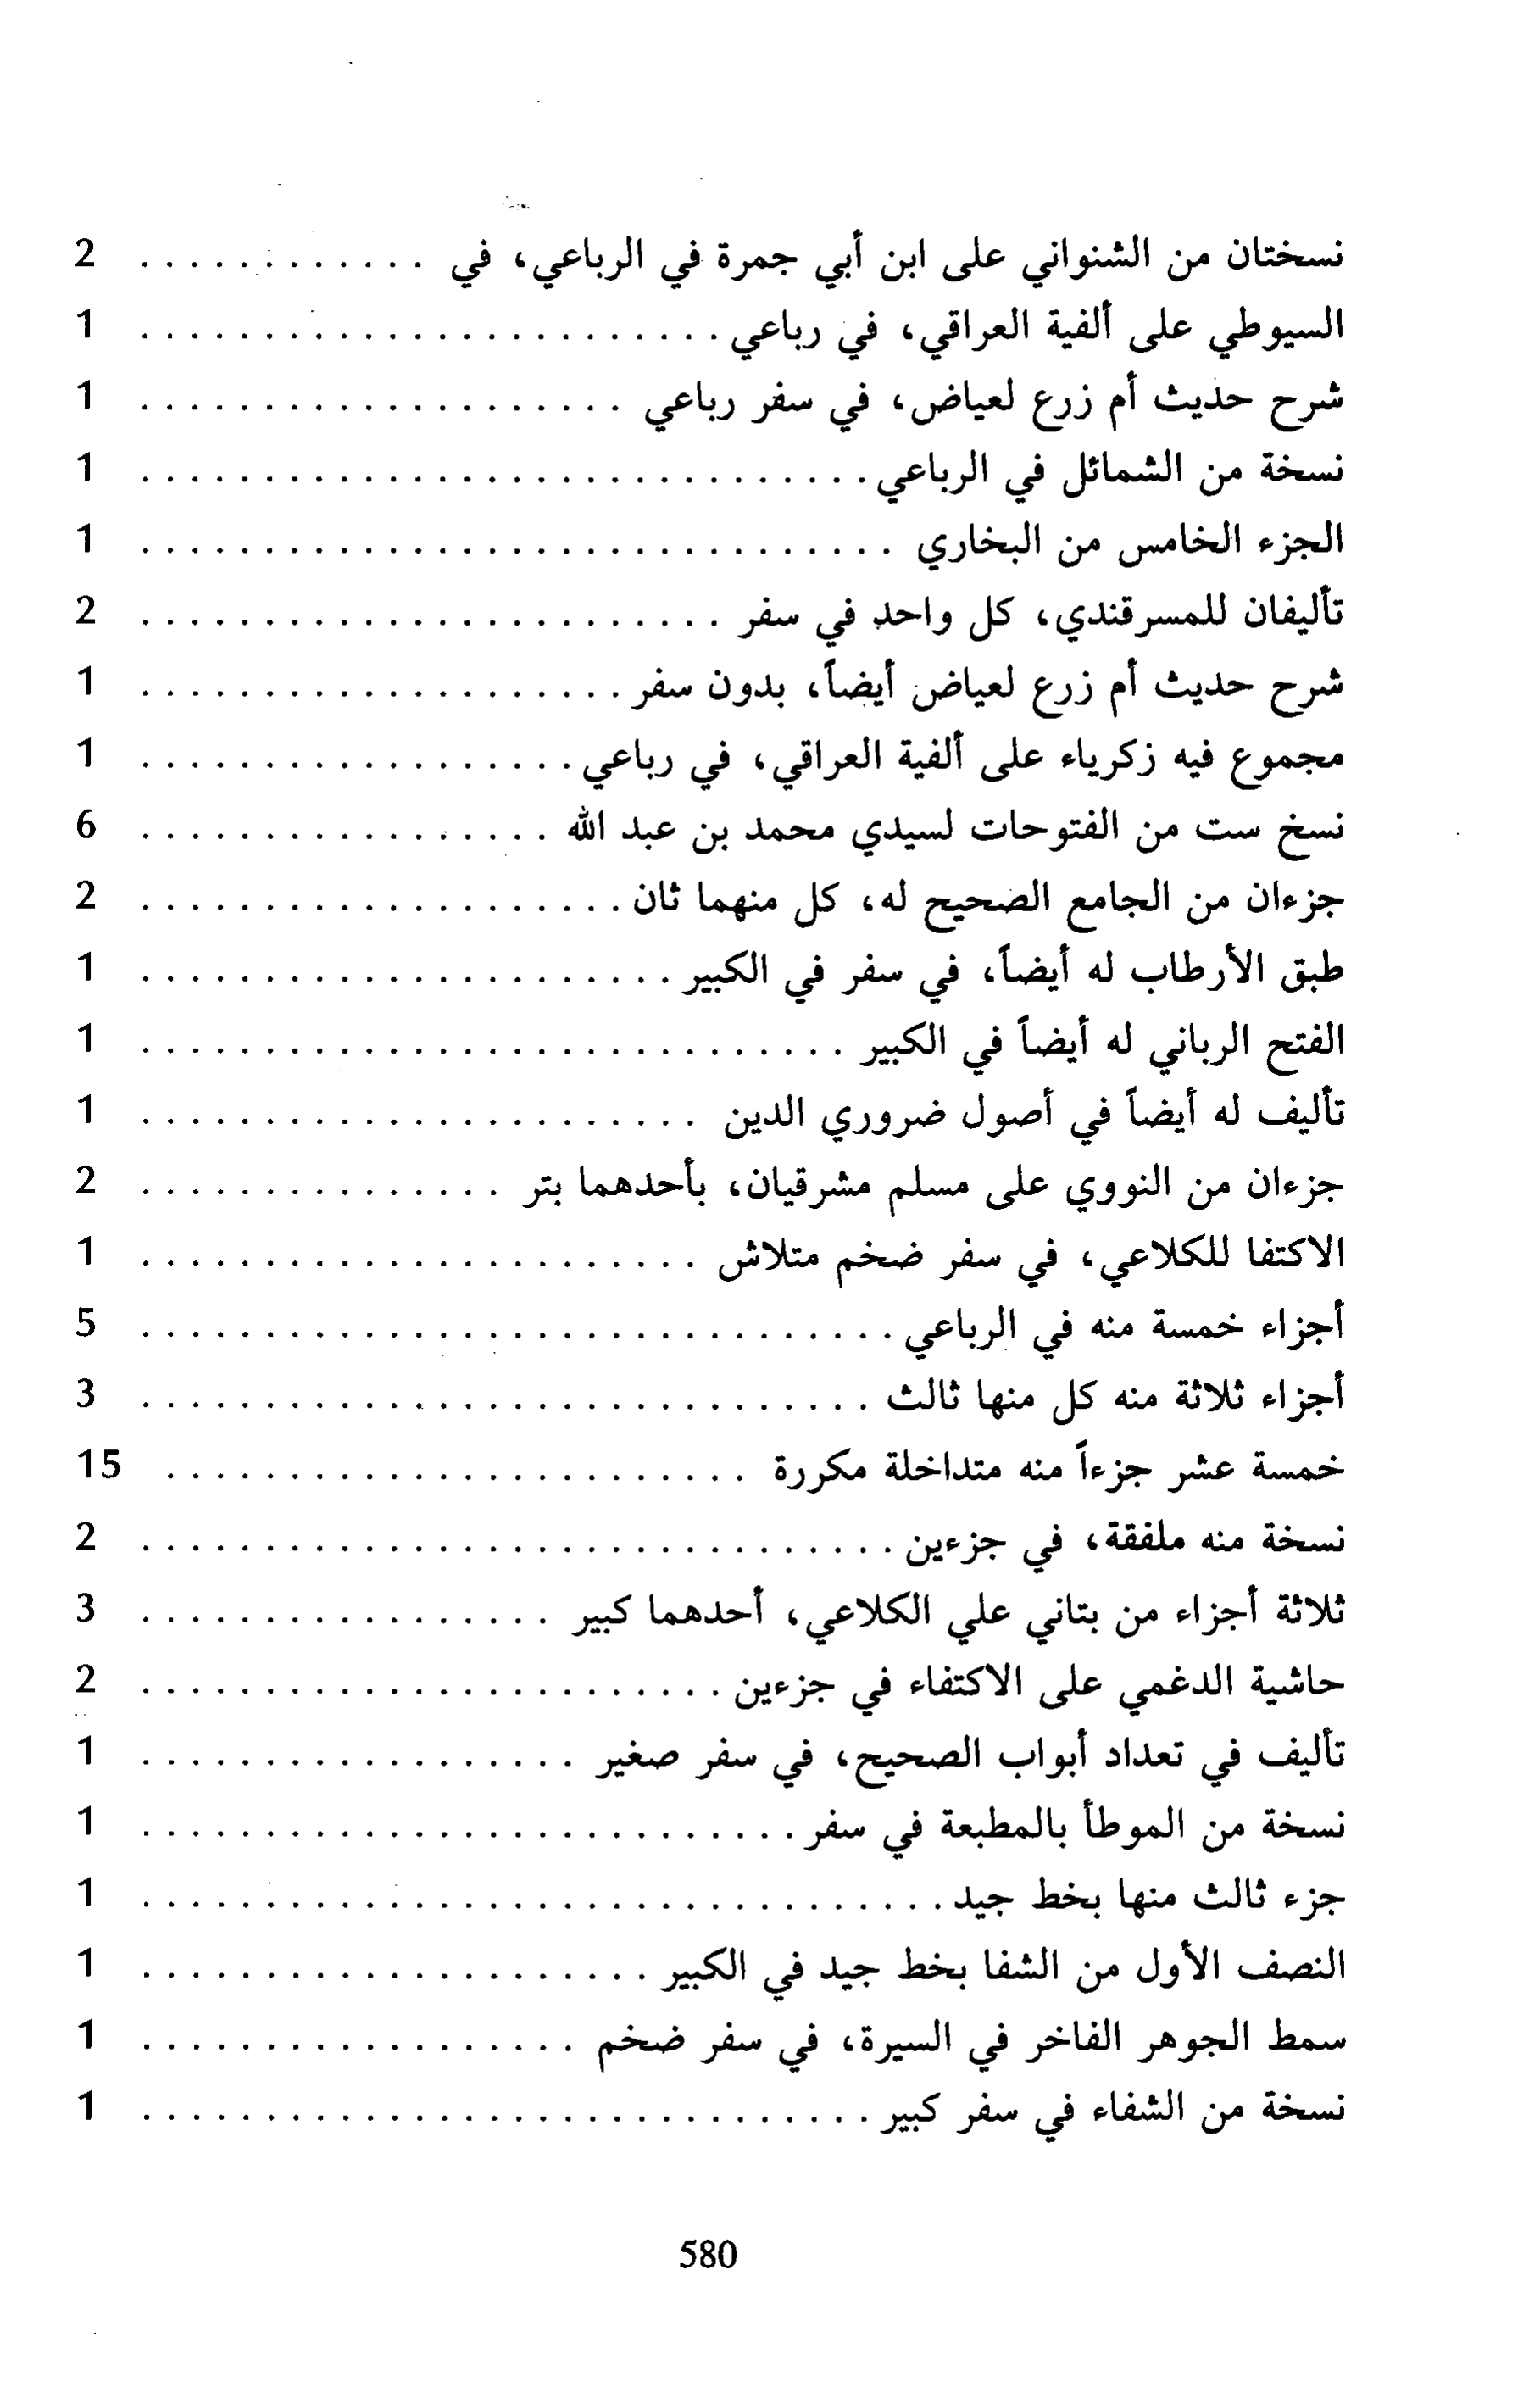 نسختان من الشنواني على ابن أبي جمرة في الرباعي، في . . . . . . . . . . . . 2
السيوطي على ألفية العراقي، في رباعي . . . . . . . . . . . . . . . . . . . . . . . . 1
شرح حديث أم زرع لعياض، في سفر رباعي . . . . . . . . . . . . . . . . . . . . 1
نسخة من الشمائل في الرباعي . . . . . . . . . . . . . . . . . . . . . . . . . . . . . . 1
الجزء الخامس من البخاري . . . . . . . . . . . . . . . . . . . . . . . . . . . . . . . 1
تأليفان للمسرقندي، كل واحد في سفر . . . . . . . . . . . . . . . . . . . . . . . . 2
شرح حديث أم زرع لعياض أيضاً، بدون سفر . . . . . . . . . . . . . . . . . . . . 1
مجموع فيه زكرياء على ألفية العراقي، في رباعي . . . . . . . . . . . . . . . . . . 1
نسخ ست من الفتوحات لسيدي محمد بن عبد الله . . . . . . . . . . . . . . . . . 6
جزءان من الجامع الصحيح له، كل منهما ثان . . . . . . . . . . . . . . . . . . . . 2
طبق الأرطاب له أيضاً، في سفر في الكبير . . . . . . . . . . . . . . . . . . . . . . 1
الفتح الرباني له أيضاً في الكبير . . . . . . . . . . . . . . . . . . . . . . . . . . . . . 1
تأليف له أيضاً في أصول ضروري الدين . . . . . . . . . . . . . . . . . . . . . . . 1
جزءان من النووي على مسلم مشرقيان، بأحدهما بتر . . . . . . . . . . . . . . . 2
الاكتفا للكلاعي، في سفر ضخم متلاش . . . . . . . . . . . . . . . . . . . . . . . 1
أجزاء خمسة منه في الرباعي . . . . . . . . . . . . . . . . . . . . . . . . . . . . . . . 5
أجزاء ثلاثة منه كل منها ثالث . . . . . . . . . . . . . . . . . . . . . . . . . . . . . . 3
خمسة عشر جزءاً منه متداخلة مكررة . . . . . . . . . . . . . . . . . . . . . . . . 15
نسخة منه ملفقة، في جزءين . . . . . . . . . . . . . . . . . . . . . . . . . . . . . . . 2
ثلاثة أجزاء من بتاني علي الكلاعي، أحدهما كبير . . . . . . . . . . . . . . . . . 3
حاشية الدغمي على الاكتفاء في جزءين . . . . . . . . . . . . . . . . . . . . . . . . 2
تأليف في تعداد أبواب الصحيح، في سفر صغير . . . . . . . . . . . . . . . . . . 1
نسخة من الموطأ بالمطبعة في سفر . . . . . . . . . . . . . . . . . . . . . . . . . . . 1
جزء ثالث منها بخط جيد . . . . . . . . . . . . . . . . . . . . . . . . . . . . . . . . . 1
النصف الأول من الشفا بخط جيد في الكبير . . . . . . . . . . . . . . . . . . . . . 1
سمط الجوهر الفاخر في السيرة، في سفر ضخم . . . . . . . . . . . . . . . . . . 1
نسخة من الشفاء في سفر كبير . . . . . . . . . . . . . . . . . . . . . . . . . . . . . . 1
580